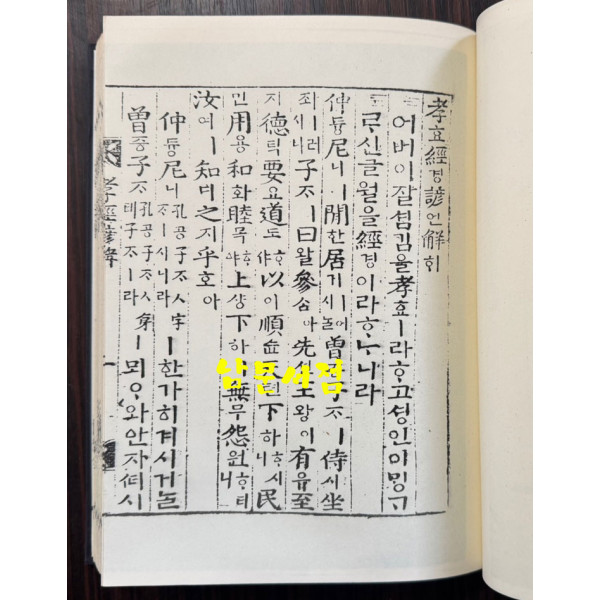 孝효經경諺언解ᄒᆡ
어버이잘셤김을孝효ㅣ라ᄒᆞ고셩인이ᄆᆡᆼᄀᆞ
ᄅᆞ신글월을經경이라ᄒᆞᄂᆞ니라
仲듕尼니ㅣ閒한居거ㅣ어시놀曾증子ᄌᆞㅣ侍시坐
좌ㅣ러시니子ᄌᆞㅣ曰왈參ᄉᆞᆷ아先션王왕이有유至
지德덕要요道도ᄒᆞ야以이順슌天텬下하ᄒᆞ시니民
민用용和화睦목ᄒᆞ야上샹下하ㅣ無무怨원ᄒᆞ더니
汝여ㅣ知디之지乎호아
仲듕尼니孔공子ᄌᆞ人字ᄌᆞㅣ시니라ㅣ한가히계시거놀
曾증子ᄌᆞ孔공子ᄌᆞ弟뎨子ᄌᆞㅣ라ㅣ뫼ᄋᆞ와안자
孝經諺解
一
남문서점